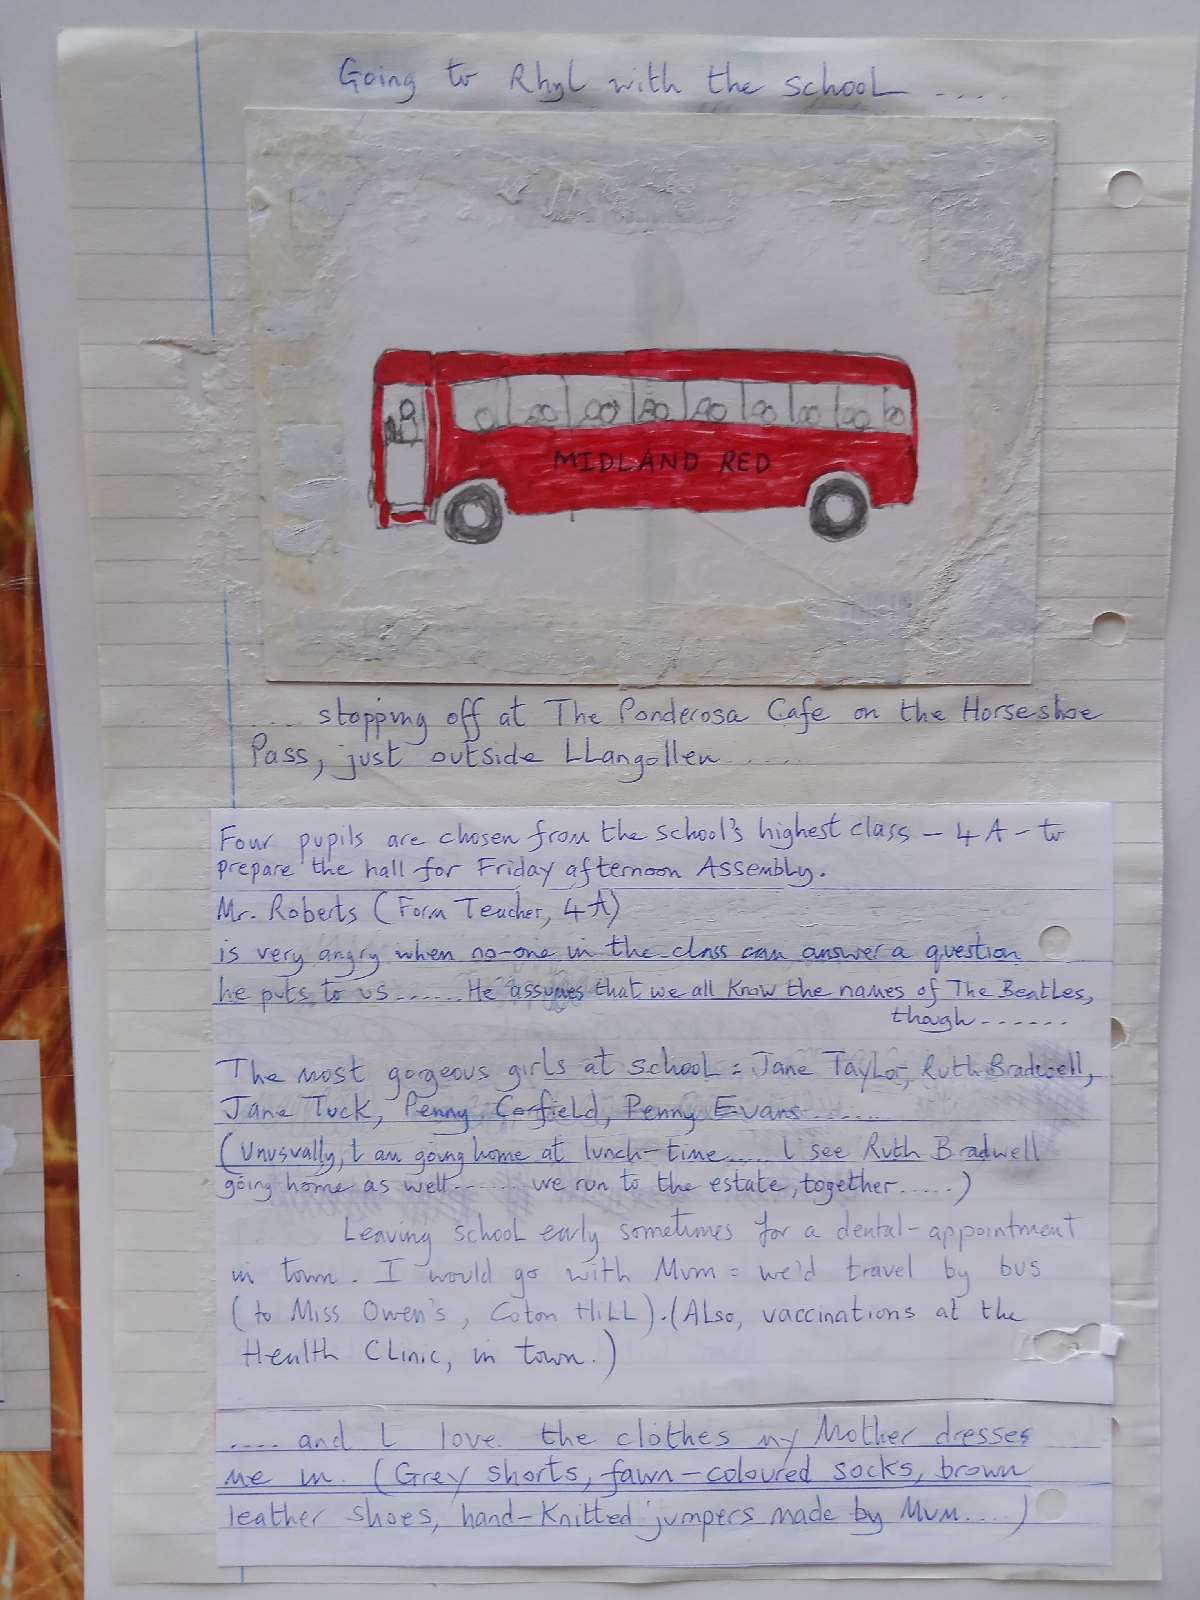 Going to Rhyl with the school ....
MIDLAND RED
.... stopping off at The Ponderosa Cafe on the Horseshoe
Pass, just outside LLangollen .....
Four pupils are chosen from the school's highest class - 4 A - to
prepare the hall for Friday afternoon Assembly.
Mr. Roberts (Form Teacher, 4 A)
is very angry when no-one in the class can answer a question
he puts to us ...... He assumes that we all know the names of The Beatles,
though ......
The most gorgeous girls at school = Jane Taylor, Ruth Bradwell,
Jane Tuck, Penny Corfield, Penny Evans ......
(Unusually, I am going home at lunch-time ..... I see Ruth Bradwell
going home as well ...... we run to the estate, together .....)
Leaving school early sometimes for a dental-appointment
in town. I would go with Mum = we'd travel by bus
(to Miss Owen's, Coton Hill). (Also, vaccinations at the
Health Clinic, in town.)
.... and I love the clothes my Mother dresses
me in. (Grey shorts, fawn-coloured socks, brown
leather shoes, hand-knitted jumpers made by Mum ....)